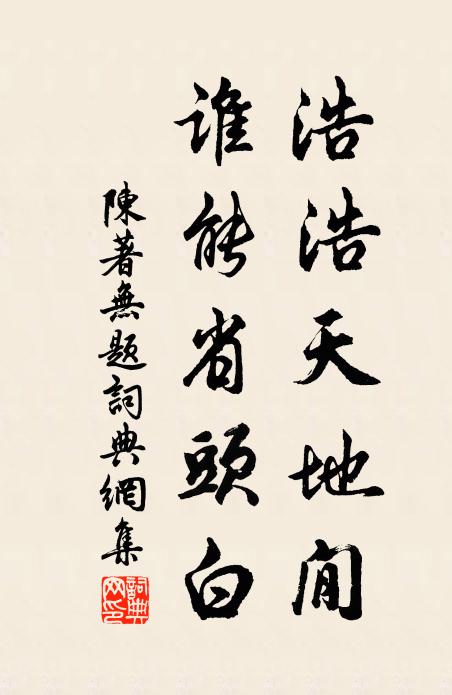 浩浩天地間
誰能省頭白
陳著無題詞典網集
詞典網印